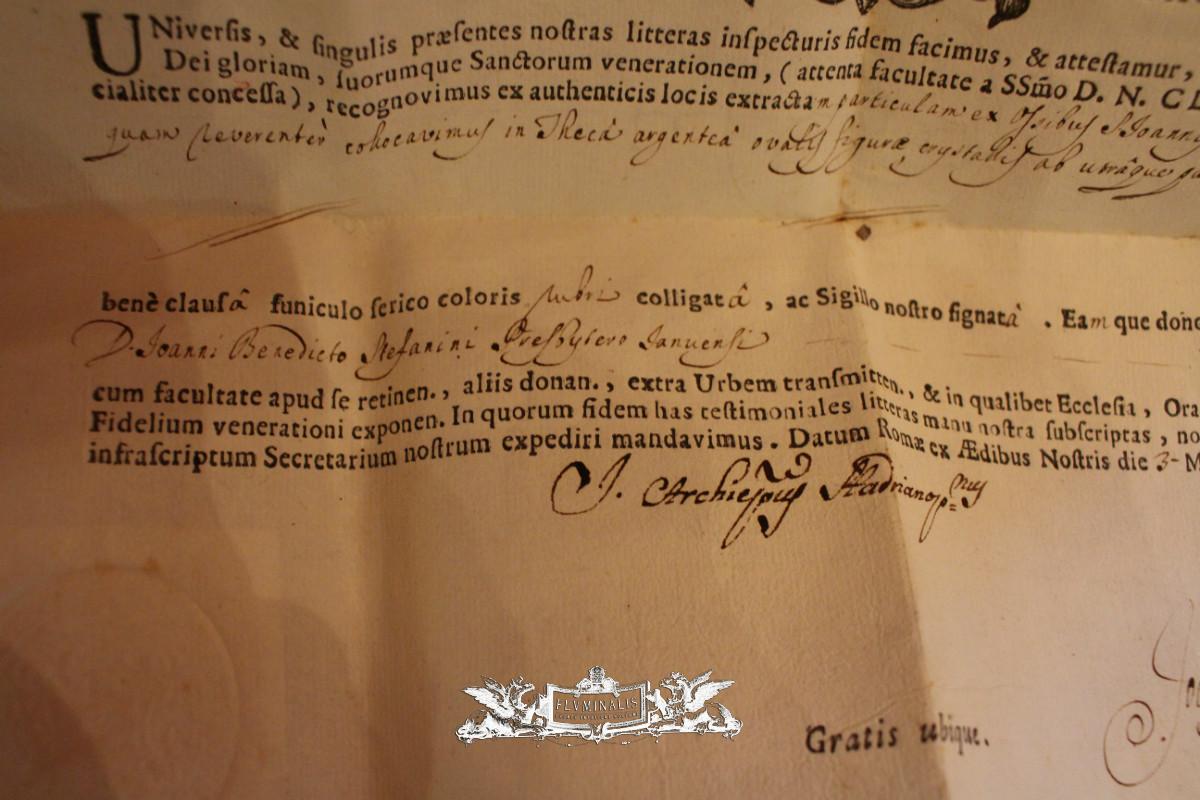 UNiversis, & singulis præsentes nostras litteras inspecturis fidem facimus, & attestamur,
Dei gloriam, suorumque Sanctorum venerationem, (attenta facultate a SSm̃o D. N. CL
cialiter concessa), recognovimus ex authenticis locis extractam particulam ex Ossibus S Joanni
quam reverentèr collocavimus in Thecâ argenteâ ovalis figuræ crystallis ab utrâque pa
benè clausâ funiculo serico coloris rubri colligatâ, ac Sigillo nostro signatâ. Eamque dono
D. Joanni Benedicto Stefanini Presbytero Januensi
cum facultate apud se retinen., aliis donan., extra Urbem transmitten., & in qualibet Ecclesia, Ora
Fidelium venerationi exponen. In quorum fidem has testimoniales litteras manu nostra subscriptas, no
infrascriptum Secretarium nostrum expediri mandavimus. Datum Romæ ex Ædibus Nostris die 3 M
J. Archiepus Hadrianop=nus
FLVMINALIS
Gratis ubique.